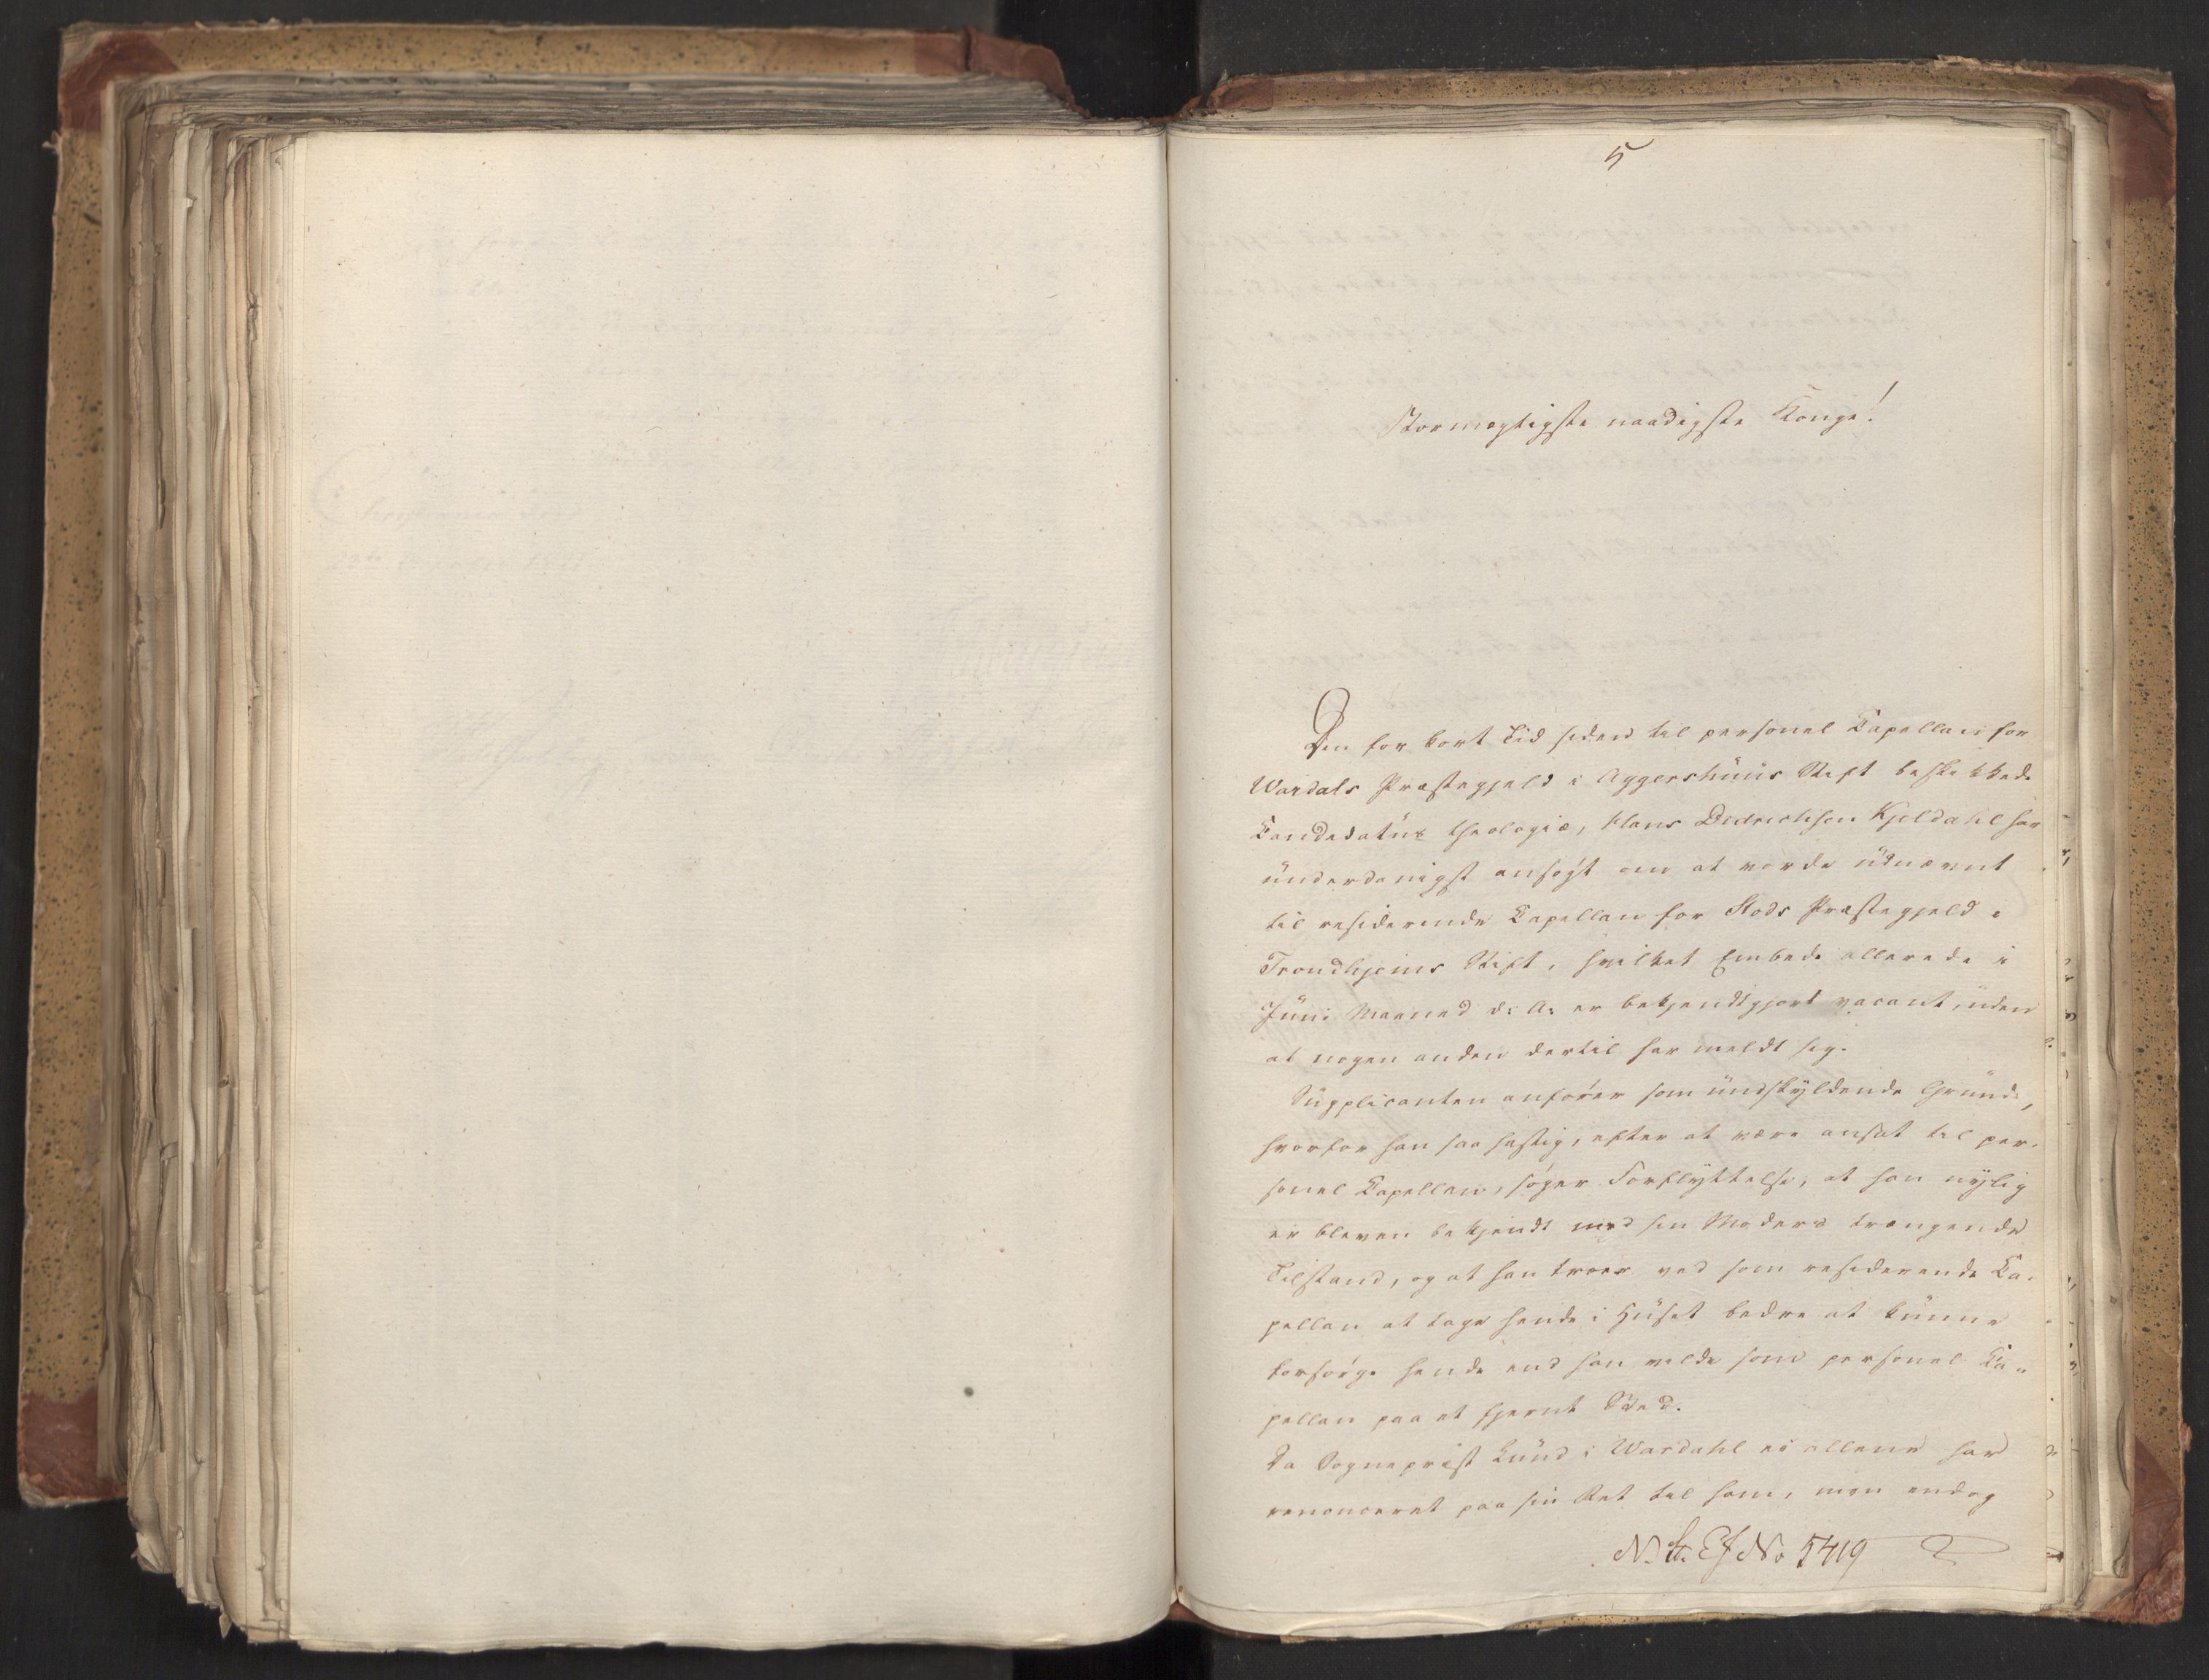 5
Stormægtigste naadigste Konge!
Den for kort Tid siden til personel Capellan for
Wardals Præstegjeld i Aggershuus Stift beskikkede
Candidatus theologiæ, Hans Didrichsen Kjeldahl har
underdanigst ansøgt om at vorde udnævnt
til residerende Capellan for Stods Præstegjeld i
Trondhjems Stift, hvilket Embede allerede i
Juni Maaned d: A: er bekjendtgjort vacant, uden
at nogen anden dertil har meldt sig.
Supplicanten anfører som undskyldende Grund,
hvorfor han saa hastig, efter at være ansat til per-
sonel Capellan, søger Forflyttelse, at han nylig
er bleven bekjendt med sin Moders trængende
Tilstand, og at han troer ved som residerende Ca-
pellan at tage hende i Huset bedre at kunne
forsørge hende end han vilde som personel Ca-
pellan paa et fjernt Sted.
Da Sogneprest Lund i Wardahl ei allene har
renonceret paa sin Ret til ham, men endog
N. St. Ef No 5419